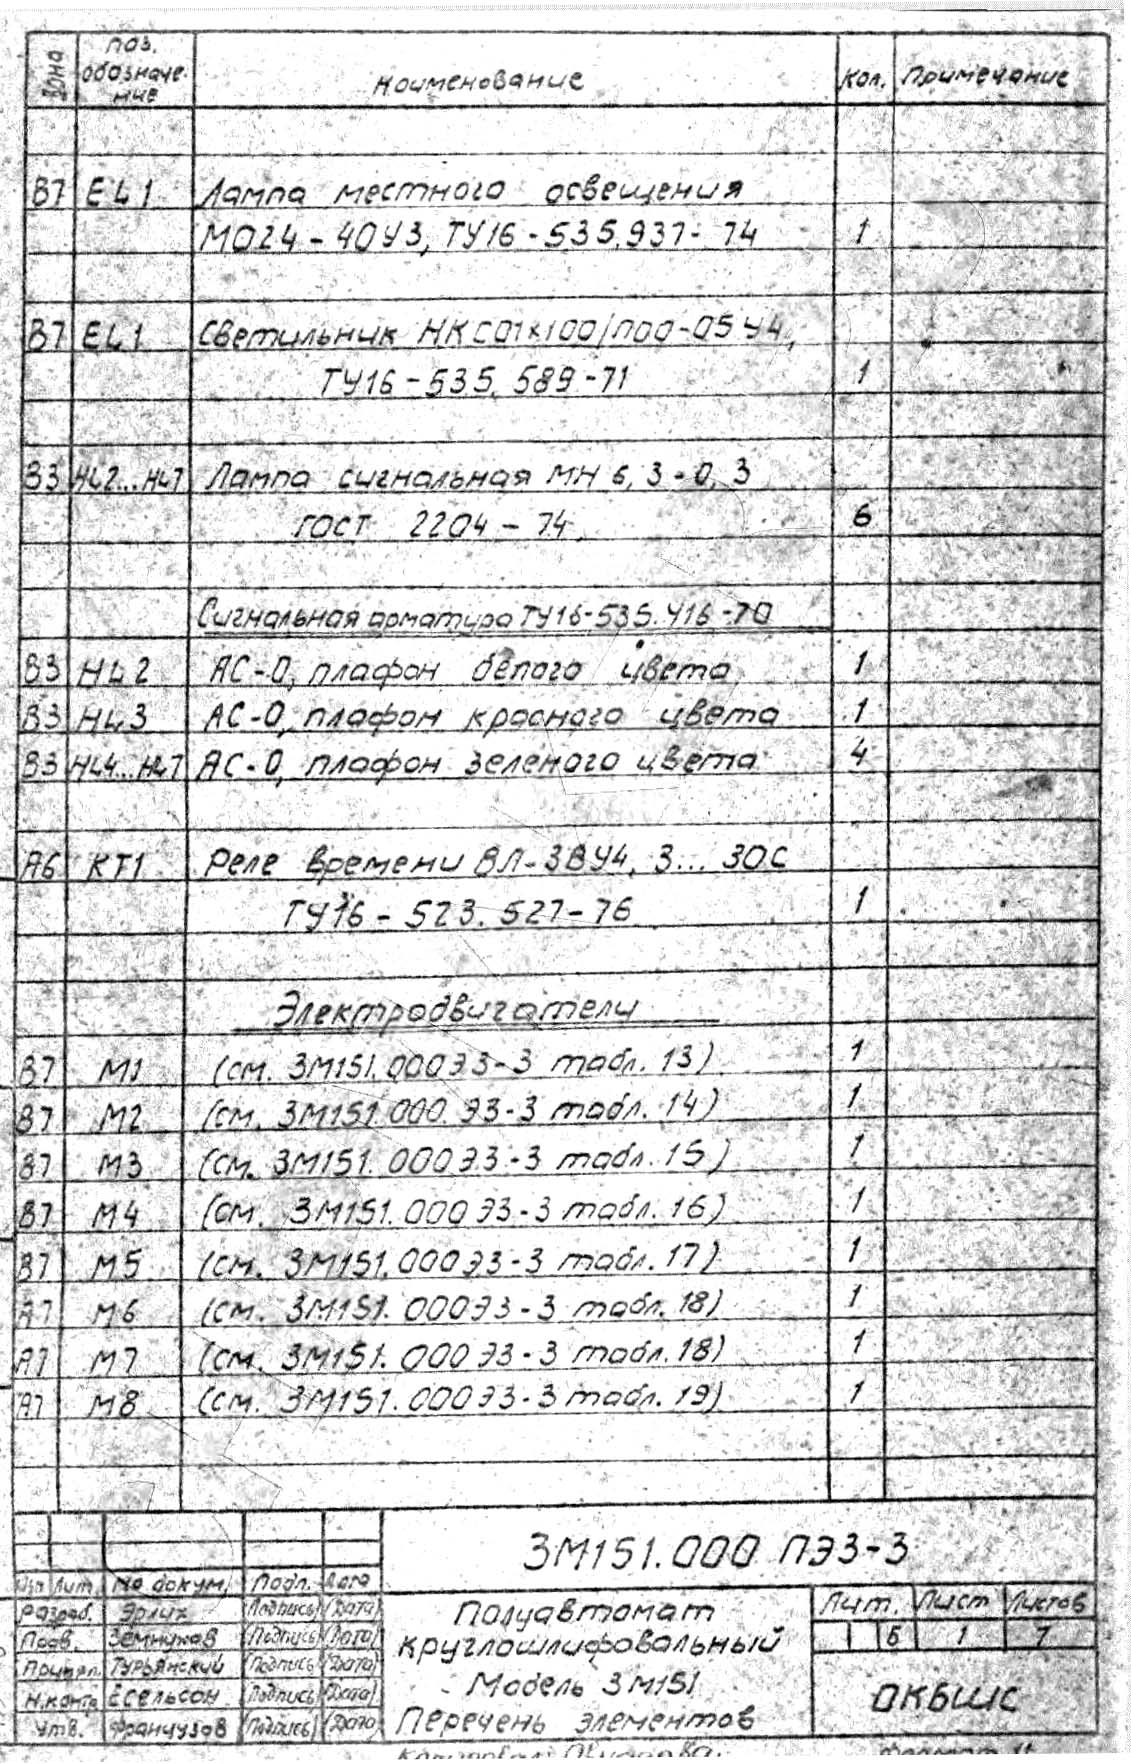 Зона
Поз. обозначе- ние
Наименование
Кол.
Примечание
В7 EL1 Лампа местного освещения
МО24-40У3, ТУ16-535.937-74 1
В7 EL1 Светильник НКС01х100/П00-05У4,
ТУ16-535.589-71 1
В3 HL2...HL7 Лампа сигнальная МН 6,3-0,3
ГОСТ 2204-74. 6
Сигнальная арматура ТУ16-535.416-70
В3 HL2 АС-0, плафон белого цвета 1
В3 HL3 АС-0, плафон красного цвета 1
В3 HL4...HL7 АС-0, плафон зеленого цвета 4
А6 КТ1 Реле времени ВЛ-38У4, 3...30с
ТУ16-523.527-76 1
Электродвигатели
В7 М1 (см. 3М151.000Э3-3 табл.13) 1
В7 М2 (см. 3М151.000.Э3-3 табл.14) 1
В7 М3 (см. 3М151.000Э3-3 табл.15) 1
В7 М4 (см. 3М151.000Э3-3 табл.16) 1
В7 М5 (см. 3М151.000Э3-3 табл.17) 1
А7 М6 (см. 3М151.000Э3-3 табл.18) 1
А7 М7 (см. 3М151.000Э3-3 табл.18) 1
А7 М8 (см. 3М151.000Э3-3 табл.19) 1
3М151.000 ПЭ3-3
Изм Лит № докум. Подп. Дата
Разраб. Эрлих (Подпись) (Дата)
Пров. Земнухов (Подпись) (Дата)
Турьянский (Подпись) (Дата)
Н.контр Есельсон (Подпись) (Дата)
Утв. Французов (Подпись) (Дата)
Полуавтомат
круглошлифовальный
Модель 3М151
Перечень элементов
Лит. Лист Листов
Б 1 7
ОКБШС
Копировал:
Формат 11